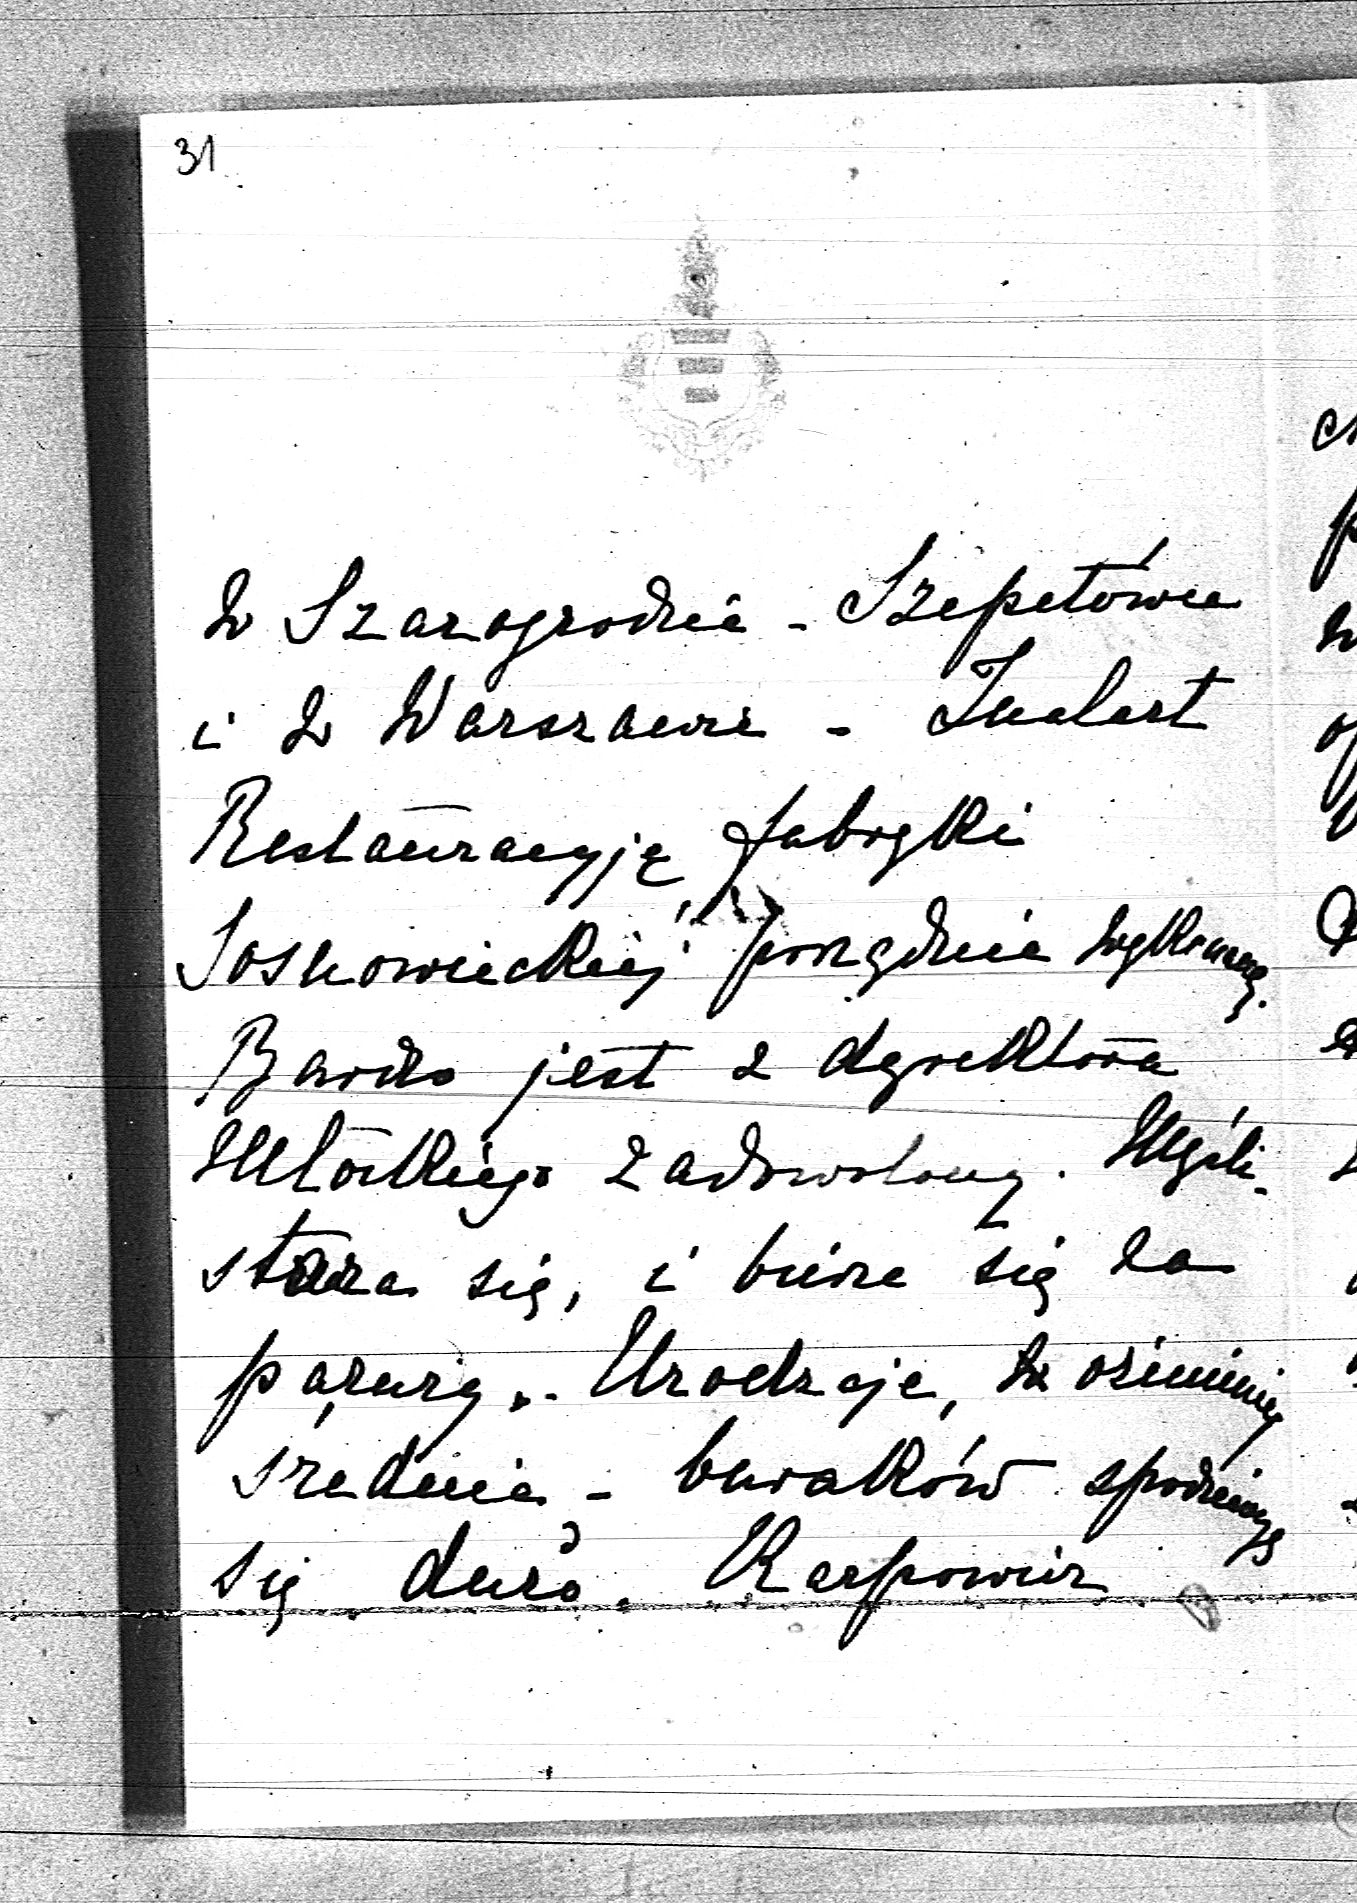 31
w Szarogrodzie - Szepetówce
i w Warszawie - Znalazł
Restauracyję fabryki
Sosnowieckiej porządnie wykonaną.
Bardzo jest z dyrektora
zadowolony. Myśli
stara się, i bierze się za
pazury. - Urodzaje, w oziminie
średnie - buraków spodziewa
się dużo. Karpowicz